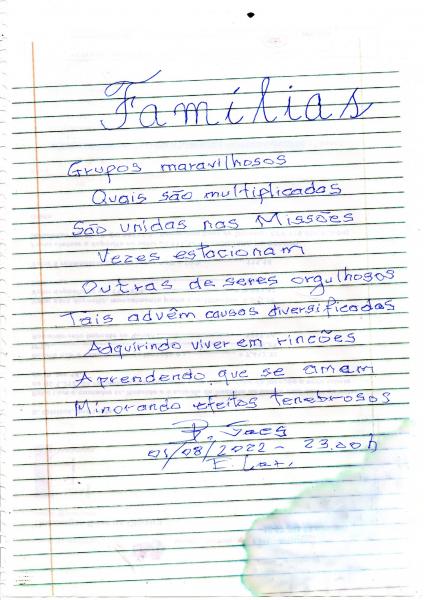 Famílias
Grupos maravilhosos
Quais são multiplicadas
São unidas nas Missões
Vezes estacionam
Outras de seres orgulhosos
Tais advêm causas diversificadas
Adquirindo viver em rincões
Aprendendo que se amam
Minorando efeitos tenebrosos
01/08/2022 - 23.00h